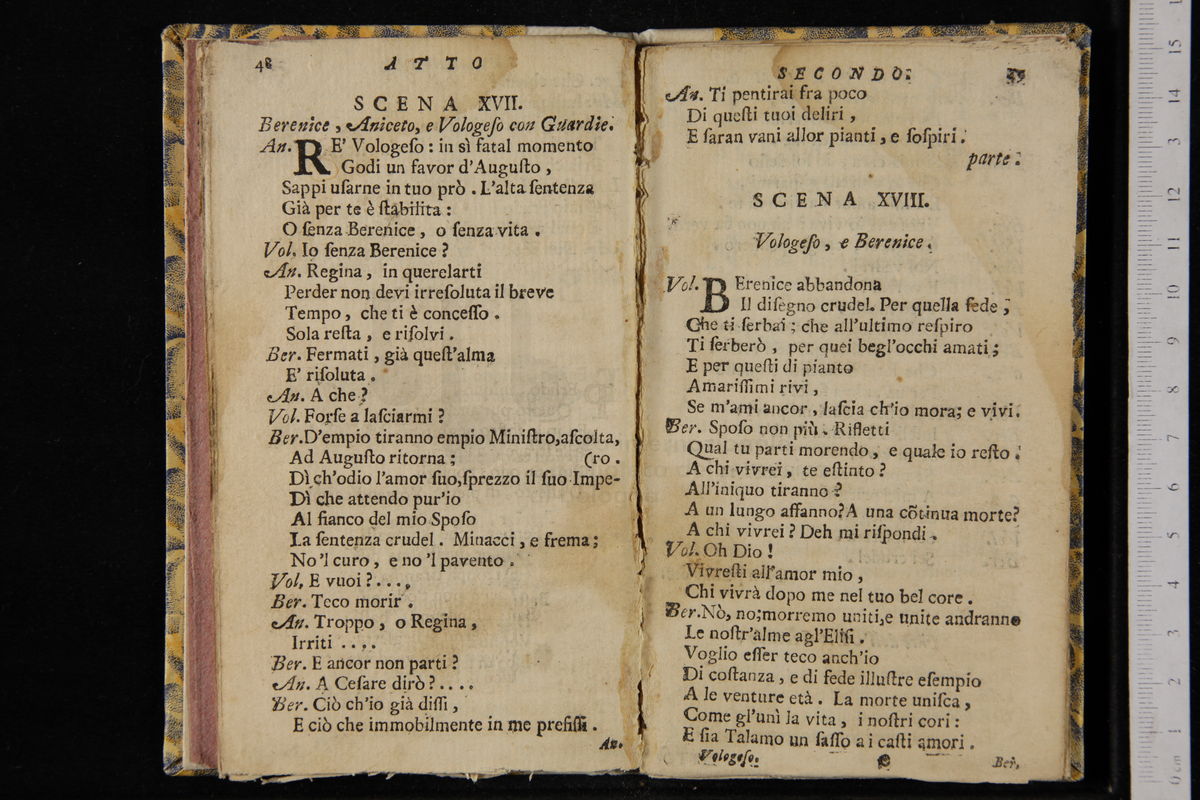 48 ATTO
SCENA XVII.
Berenice, Aniceto, e Vologeſo con Guardie.
An. RE' Vologeſo: in sì fatal momento
Godi un favor d'Auguſto,
Sappi uſarne in tuo prò. L'alta ſentenza
Già per te è ſtabilita:
O ſenza Berenice, o ſenza vita.
Vol. Io ſenza Berenice?
An. Regina, in querelarti
Perder non devi irreſoluta il breve
Tempo, che ti è conceſſo.
Sola reſta, e riſolvi.
Ber. Fermati, già queſt'alma
E' riſoluta.
An. A che?
Vol. Forſe a laſciarmi?
Ber. D'empio tiranno empio Miniſtro, aſcolta,
Ad Auguſto ritorna; (ro.
Dì ch'odio l'amor ſuo, ſprezzo il ſuo Impe-
Dì che attendo pur'io
Al fianco del mio Spoſo
La ſentenza crudel. Minacci, e frema;
No 'l curo, e no 'l pavento.
Vol. E vuoi?....
Ber. Teco morir.
An. Troppo, o Regina,
Irriti ....
Ber. E ancor non parti?
An. A Ceſare dirò?....
Ber. Ciò ch'io già diſſi,
E ciò che immobilmente in me prefiſſi.
An.
SECONDO.
An. Ti pentirai fra poco
Di queſti tuoi deliri,
E ſaran vani allor pianti, e ſoſpiri.
parte.
SCENA XVIII.
Vologeſo, e Berenice.
Vol. BErenice abbandona
Il diſegno crudel. Per quella fede,
Che ti ſerbai; che all'ultimo reſpiro
Ti ſerberò, per quei begl'occhi amati;
E per queſti di pianto
Amariſſimi rivi,
Se m'ami ancor, laſcia ch'io mora; e vivi.
Ber. Spoſo non più. Rifletti
Qual tu parti morendo, e quale io reſto.
A chi vivrei, te eſtinto?
All'iniquo tiranno?
A un lungo affanno? A una cõtinua morte?
A chi vivrei? Deh mi riſpondi.
Vol. Oh Dio!
Vivreſti all'amor mio,
Chi vivrà dopo me nel tuo bel core.
Ber. Nò, no; morremo uniti, e unite andranno
Le noſtr'alme agl'Eliſi.
Voglio eſſer teco anch'io
Di coſtanza, e di fede illuſtre eſempio
A le venture età. La morte uniſca,
Come gl'unì la vita, i noſtri cori:
E ſia Talamo un ſaſſo a i caſti amori.
Vologeſo. Ber.